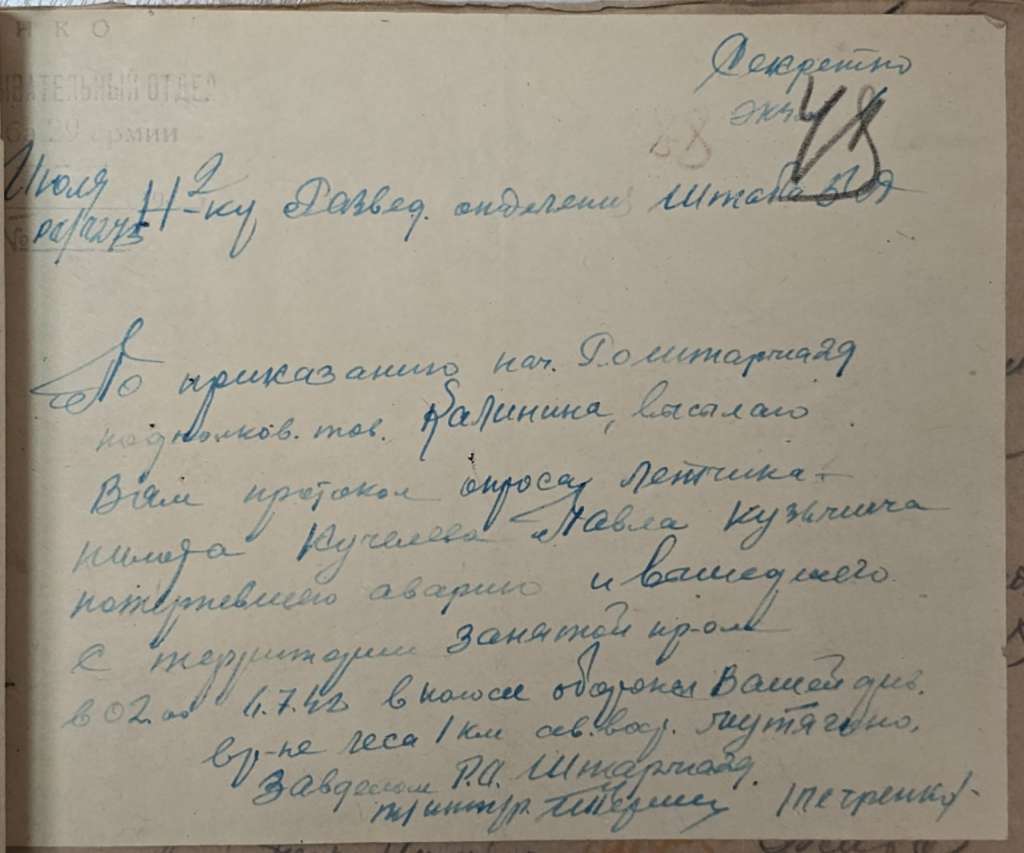 НКО
ЫВАТЕЛЬНЫЙ ОТДЕЛ
ба 29 армии
Секретно
экз.
48
48
Июля
№
Н-ку Развед. отделения Штаба
По приказанию нач. Р.О. Штарма 29
подполков. тов. Калинина, высылаю
Вам протокол опроса летчика-
пилота Кучелева Павла Кузьмича
потерпевшего аварию и вышедшего
с территории занятой пр-ом
в 02.00 4.7.42 в полосе обороны Вашей див.
в р-не леса 1 км св. вост. Мутягино,
Завделом Р.О. Штарма 29
/Петренко/